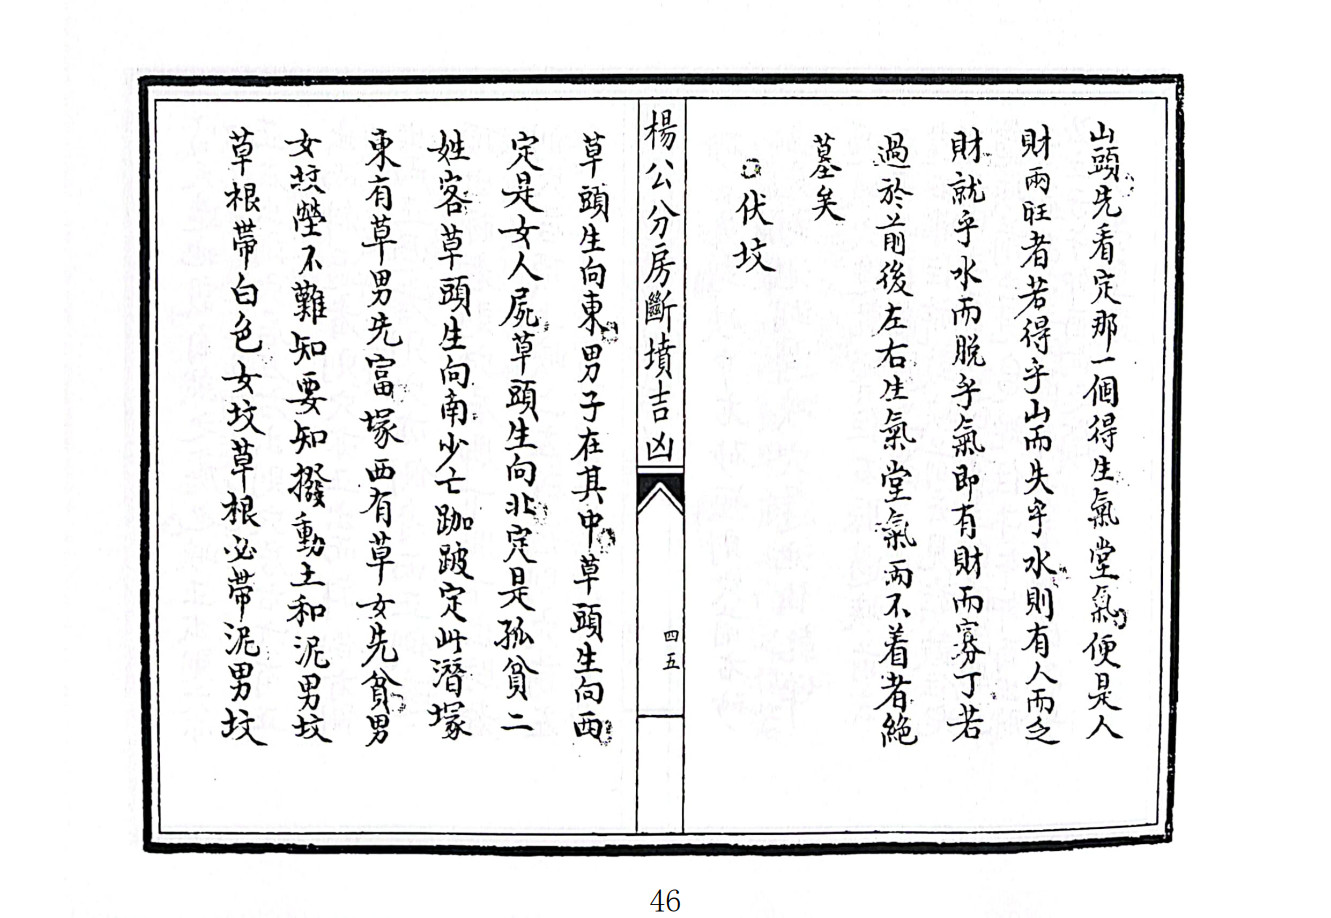 山頭先看定那一個得生氣堂氣便是人
財兩旺者若得乎山而失乎水則有人而乏
財就乎水而脫乎氣即有財而寡丁若
過於前後左右生氣堂氣而不着者絕
墓矣
伏坟
楊公公分房斷墳吉凶
四五
草頭生向東男子在其中草頭生向西
定是女人屍草頭生向北定是孤貧二
姓客草頭生向南少亡跏跛定此潛塚
東有草男先富塚西有草女先貧男
女坟塋不難知要知撥動土和泥男坟
草根帶白色女坟草根必帶泥男坟
46